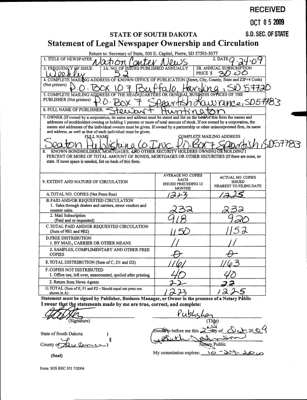 RECEIVED
OCT 05 2009
S.D. SEC. OF STATE
STATE OF SOUTH DAKOTA
Statement of Legal Newspaper Ownership and Circulation
Return to: Secretary of State, 500 E. Capitol, Pierre, SD 57501-5077
1. TITLE OF NEWSPAPER Nation Center News
2. DATE 9-24-09
3. FREQUENCY OF ISSUE Weekly
3A. NO. OF ISSUES PUBLISHED ANNUALLY 52
3B. ANNUAL SUBSCRIPTION PRICE $ 30.00
4. COMPLETE MAILING ADDRESS OF KNOWN OFFICE OF PUBLICATION (Street, City, County, State and ZIP+4 Code)
(Not printers) P.O. Box 107 Buffalo, Harding, SD 57720
5. COMPLETE MAILING ADDRESS OF THE HEADQUARTERS OF GENERAL BUSINESS OFFICES OF THE
PUBLISHER (Not printer) P.O. Box 7 Spearfish, Lawrence, SD 57783
6. FULL NAME OF PUBLISHER: Stewart Huntington
7. OWNER (If owned by a corporation, its name and address must be stated and list on the back of this form the names and
addresses of stockholders owning or holding 1 percent or more of total amount of stock. If not owned by a corporation, the
names and addresses of the individual owners must be given. If owned by a partnership or other unincorporated firm, its name
and address, as well as that of each individual must be given.
FULL NAME
COMPLETE MAILING ADDRESS
Seaton Publishing Co Inc. PO Box 7 Spearfish, SD 57783
8. KNOWN BONDHOLDERS, MORTGAGEES, AND OTHER SECURITY HOLDERS OWNING OR HOLDING 1
PERCENT OR MORE OF TOTAL AMOUNT OF BONDS, MORTGAGES OR OTHER SECURITIES (If there are none, so
state. If more space is needed, list on back of this form.
9. EXTENT AND NATURE OF CIRCULATION
AVERAGE NO. COPIES EACH ISSUED PRECEDING 12 MONTHS
ACTUAL NO. COPIES ISSUED NEAREST TO FILING DATE
A. TOTAL NO. COPIES (Net Press Run) 1223 1225
B. PAID AND/OR REQUESTED CIRCULATION
1. Sales through dealers and carriers, street vendors and
counter sales. 232 232
2. Mail Subscription
(Paid and or requested) 918 920
C. TOTAL PAID AND/OR REQUESTED CIRCULATION
(Sum of 9B1 and 9B2) 1150 1152
D. FREE DISTRIBUTION
1. BY MAIL, CARRIER OR OTHER MEANS 11 11
2. SAMPLES, COMPLIMENTARY AND OTHER FREE
COPIES
E. TOTAL DISTRIBUTION (Sum of C, D1 and D2) 1161 1163
F. COPIES NOT DISTRIBUTED
1. Office use, left over, unaccounted, spoiled after printing 40 40
2. Return from News Agents 22 22
G. TOTAL (Sum of E, F1 and F2 - Should equal net press run
shown in A) 1223 1225
Statement must be signed by Publisher, Business Manager, or Owner in the presence of a Notary Public
I swear that the statements made by me are true, correct, and complete:
Publisher
(Signature)
(Title)
State of South Dakota )
before me this 2nd day of Oct 2009
County of Lawrence )
Notary Public
(Seal)
My commission expires:
Form: SOS REC 051 7/2004